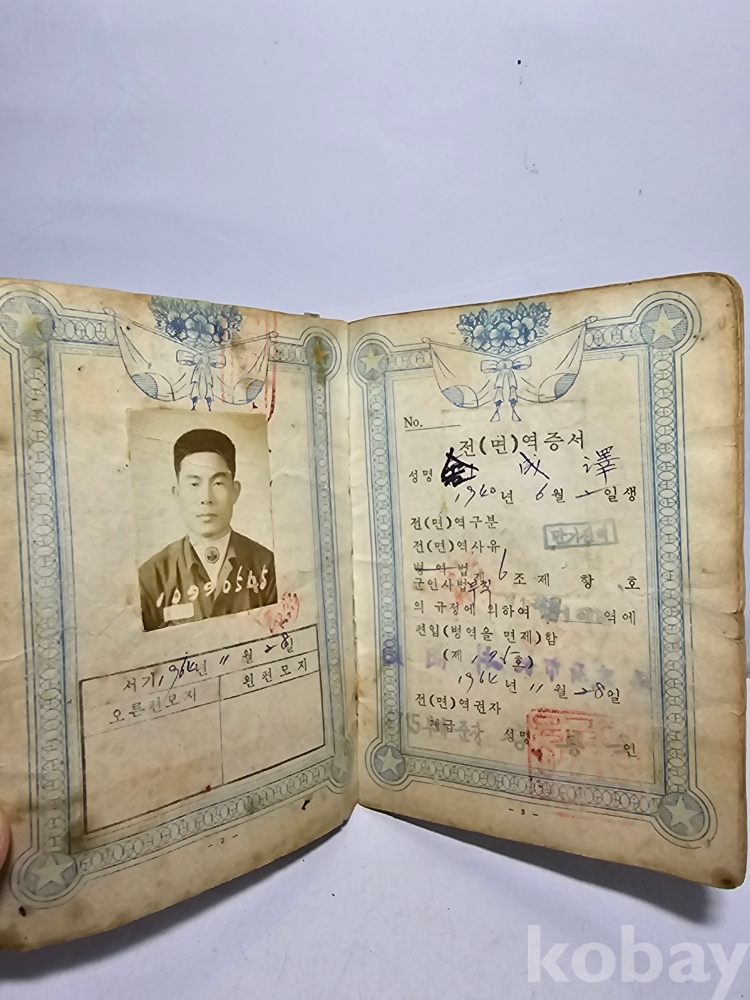 10990545
서기 1964년 11월 28일
오른편모지 왼편모지
- 2 -
No.
전(면)역증서
성명 成 澤
1940년 6월 2일생
전(면)역구분 만기전역
전(면)역사유
병역법
군인사법부칙 6조제 항 호
의 규정에 의하여 역에
편입(병역을 면제)함
(제 175호)
1964년 11월 28일
전(면)역권자
계급 준장 성명 인
- 3 -
kobay